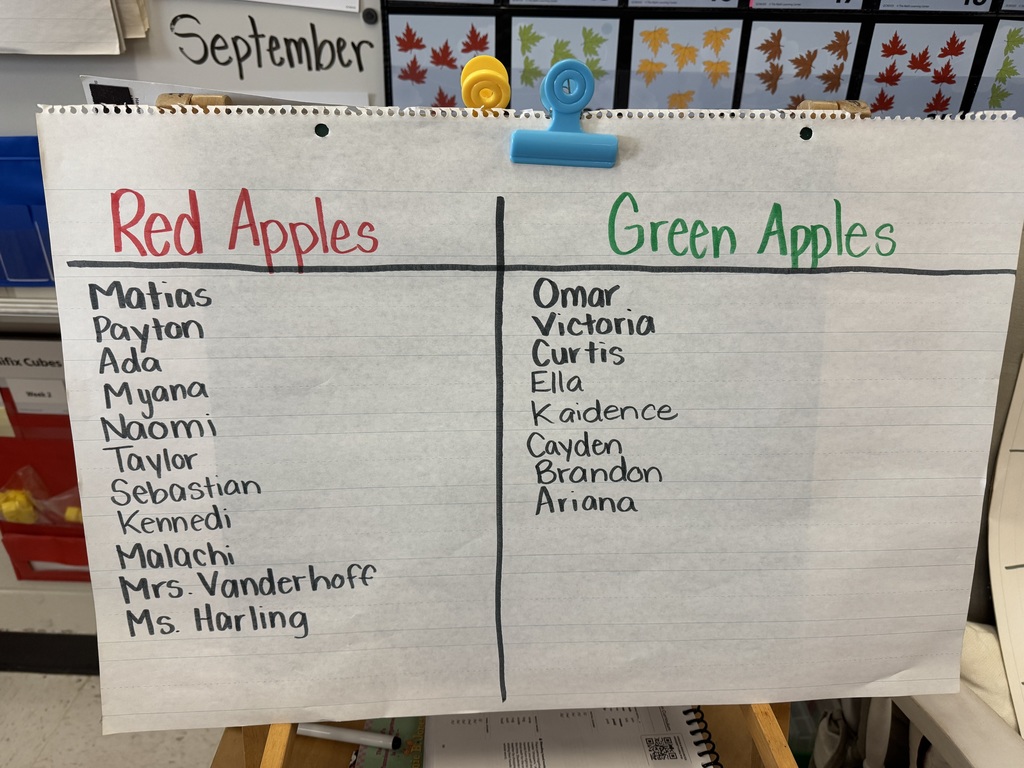 September
Red Apples
Green Apples
Matias
Payton
Ada
Myana
Naomi
Taylor
Sebastian
Kennedi
Malachi
Mrs. Vanderhoff
Ms. Harling
Omar
Victoria
Curtis
Ella
Kaidence
Cayden
Brandon
Ariana
Cubes
Week 2